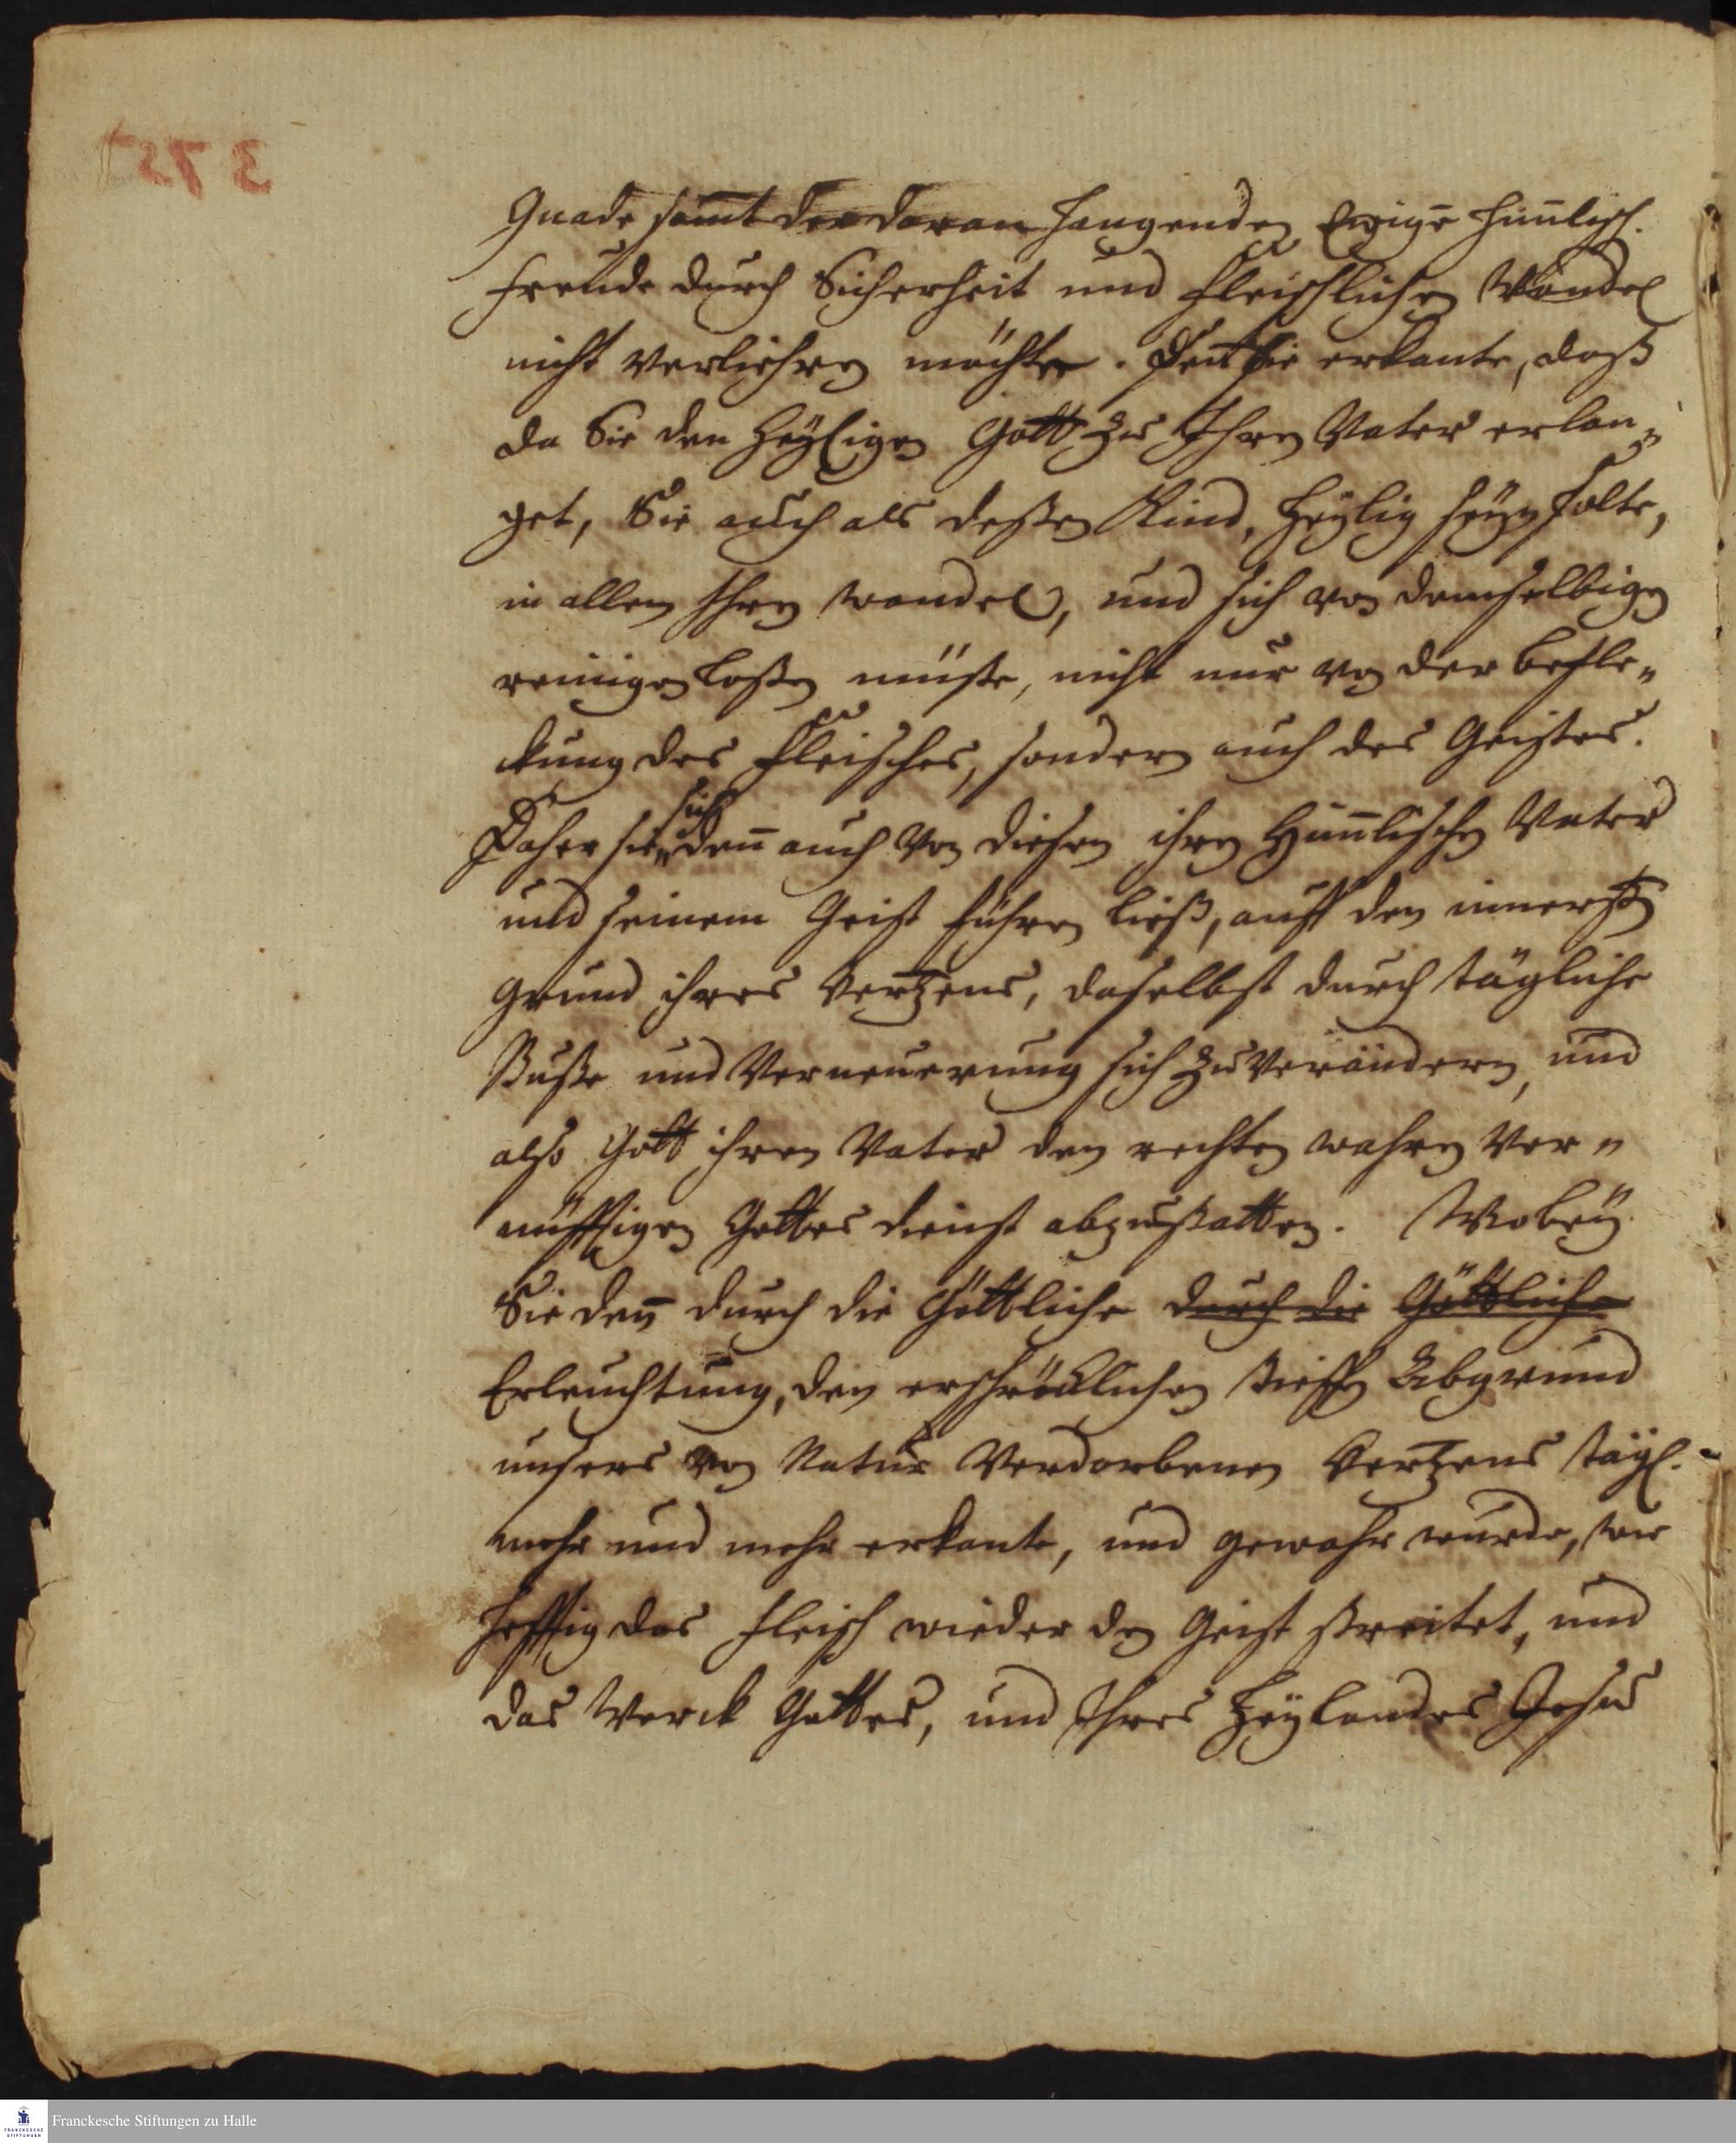 Gnade samt der daran hangenden Ewigē him̄lisch.
Freude durch Sicherheit und fleischlichen Wandel
nicht verliehren möchte. Den Sie erkante, daß
da Sie den Heÿligen Gott zu Ihren Vater erlan„
get, Sie auch als deßen Kind, heÿlig seÿn solte,
in allen Ihren wandel, und sich von demselbigen
reinigen laßen müste, nicht nur von der befle„
ckung des Fleisches, sondern auch des Geistes.
Daher sie sich den̄ auch von diesen ihren Him̄lischen Vater
und seinem Geist führen ließ, auff den innersten
Grund ihres Hertzens, daselbst durch tägliche
Buße und Verneuerung sich zu verändern, und
also Gott ihren Vater den rechten wahren Ver„
nünfftigen Gottes dienst abzustatten. Wobeÿ
Sie den̄ durch die Göttliche durch die Göttliche
Erleuchtung, den erschröcklichen tieffen Abgrund
unsers von Natur Verdorbenen Hertzens tägl.
mehr und mehr erkante, und gewahr wurde, wie
hefftig das Fleisch wieder den Geist streitet, und
das Werck Gottes, und Ihres Heÿlandes Jesu
Franckesche Stiftungen zu Halle
FRANCKESCHE
STIFTUNGEN